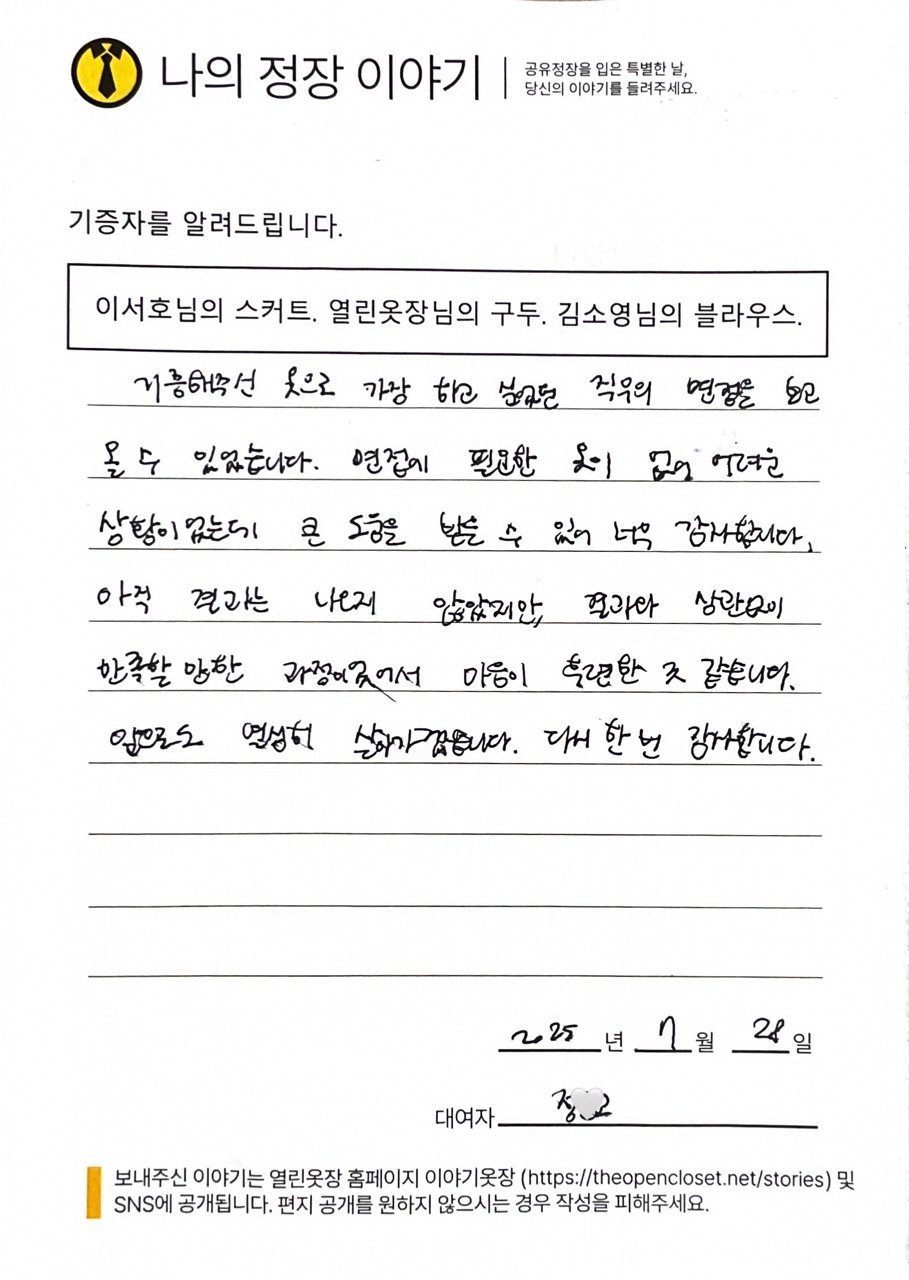 나의 정장 이야기
공유정장을 입은 특별한 날,
당신의 이야기를 들려주세요.
기증자를 알려드립니다.
이서호님의 스커트. 열린옷장님의 구두. 김소영님의 블라우스.
기증해주신 옷으로 가장 하고 싶었던 직무의 면접을 보고
올 수 있었습니다. 면접에 필요한 옷이 없어 어려운
상황이었는데 큰 도움을 받을 수 있어 너무 감사합니다.
아직 결과는 나오지 않았지만, 결과와 상관없이
만족할 만한 과정이었어서 마음이 후련한 것 같습니다.
앞으로도 열심히 살아가겠습니다. 다시 한 번 감사합니다.
2025 년 7 월 28 일
대여자 정
보내주신 이야기는 열린옷장 홈페이지 이야기옷장 (https://theopencloset.net/stories) 및
SNS에 공개됩니다. 편지 공개를 원하지 않으시는 경우 작성을 피해주세요.